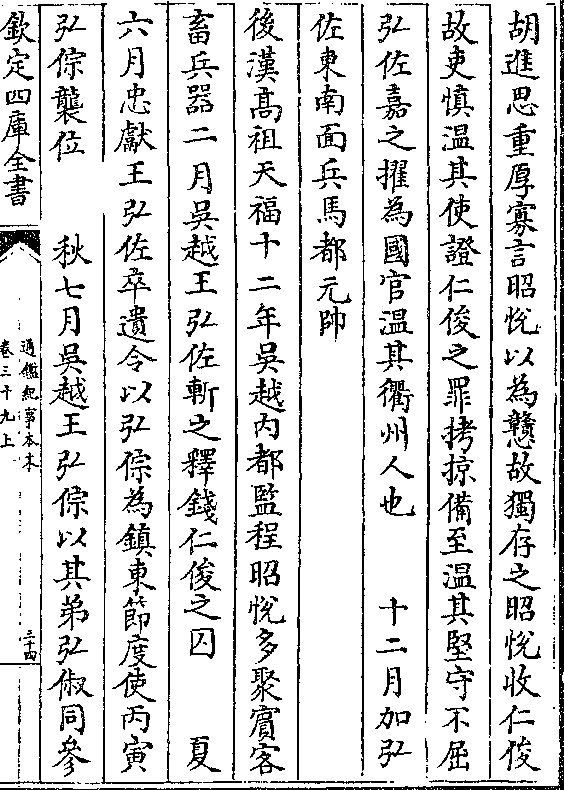 胡進思重厚寡言昭悅以為戇故獨存之昭悅收仁俊
故吏慎温其使證仁俊之罪拷掠備至温其堅守不屈
弘佐嘉之擢為國官温其衢州人也　　十二月加弘
佐東南面兵馬都元帥
後漢髙祖天福十二年吳越内都監程昭悅多聚賔客
畜兵器二月吳越王弘佐斬之釋錢仁俊之囚　　夏
六月忠獻王弘佐卒遺令以弘倧為鎮東節度使丙寅
弘倧襲位　　秋七月吳越王弘倧以其弟弘俶同參
欽定四庫全書
通鑑紀事本末
卷三十九上
三十四